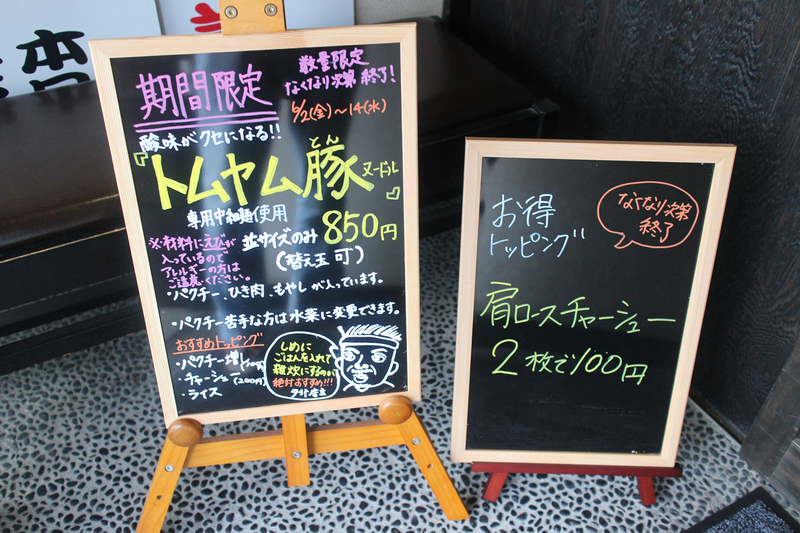 期間限定
数量限定
なくなり次第終了!
6/2(金)~14(水)
酸味がクセになる!!
『トムヤム豚ヌードル』
とん
専用中細麺使用
並サイズのみ 850円
(替え玉 可)
※材料にえびが
入っているので
アレルギーの方は
ご注意ください。
・パクチー、ひき肉、もやしが入っています。
・パクチー苦手な方は水菜に変更できます。
おすすめトッピング
・パクチー増し(100円)
・チャーシュー(200円)
・ライス
しめに
ごはんを入れて
雑炊にするのが
絶対おすすめ!!!
お得
トッピング
なくなり次第
終了
肩ロースチャーシュー
2枚で100円